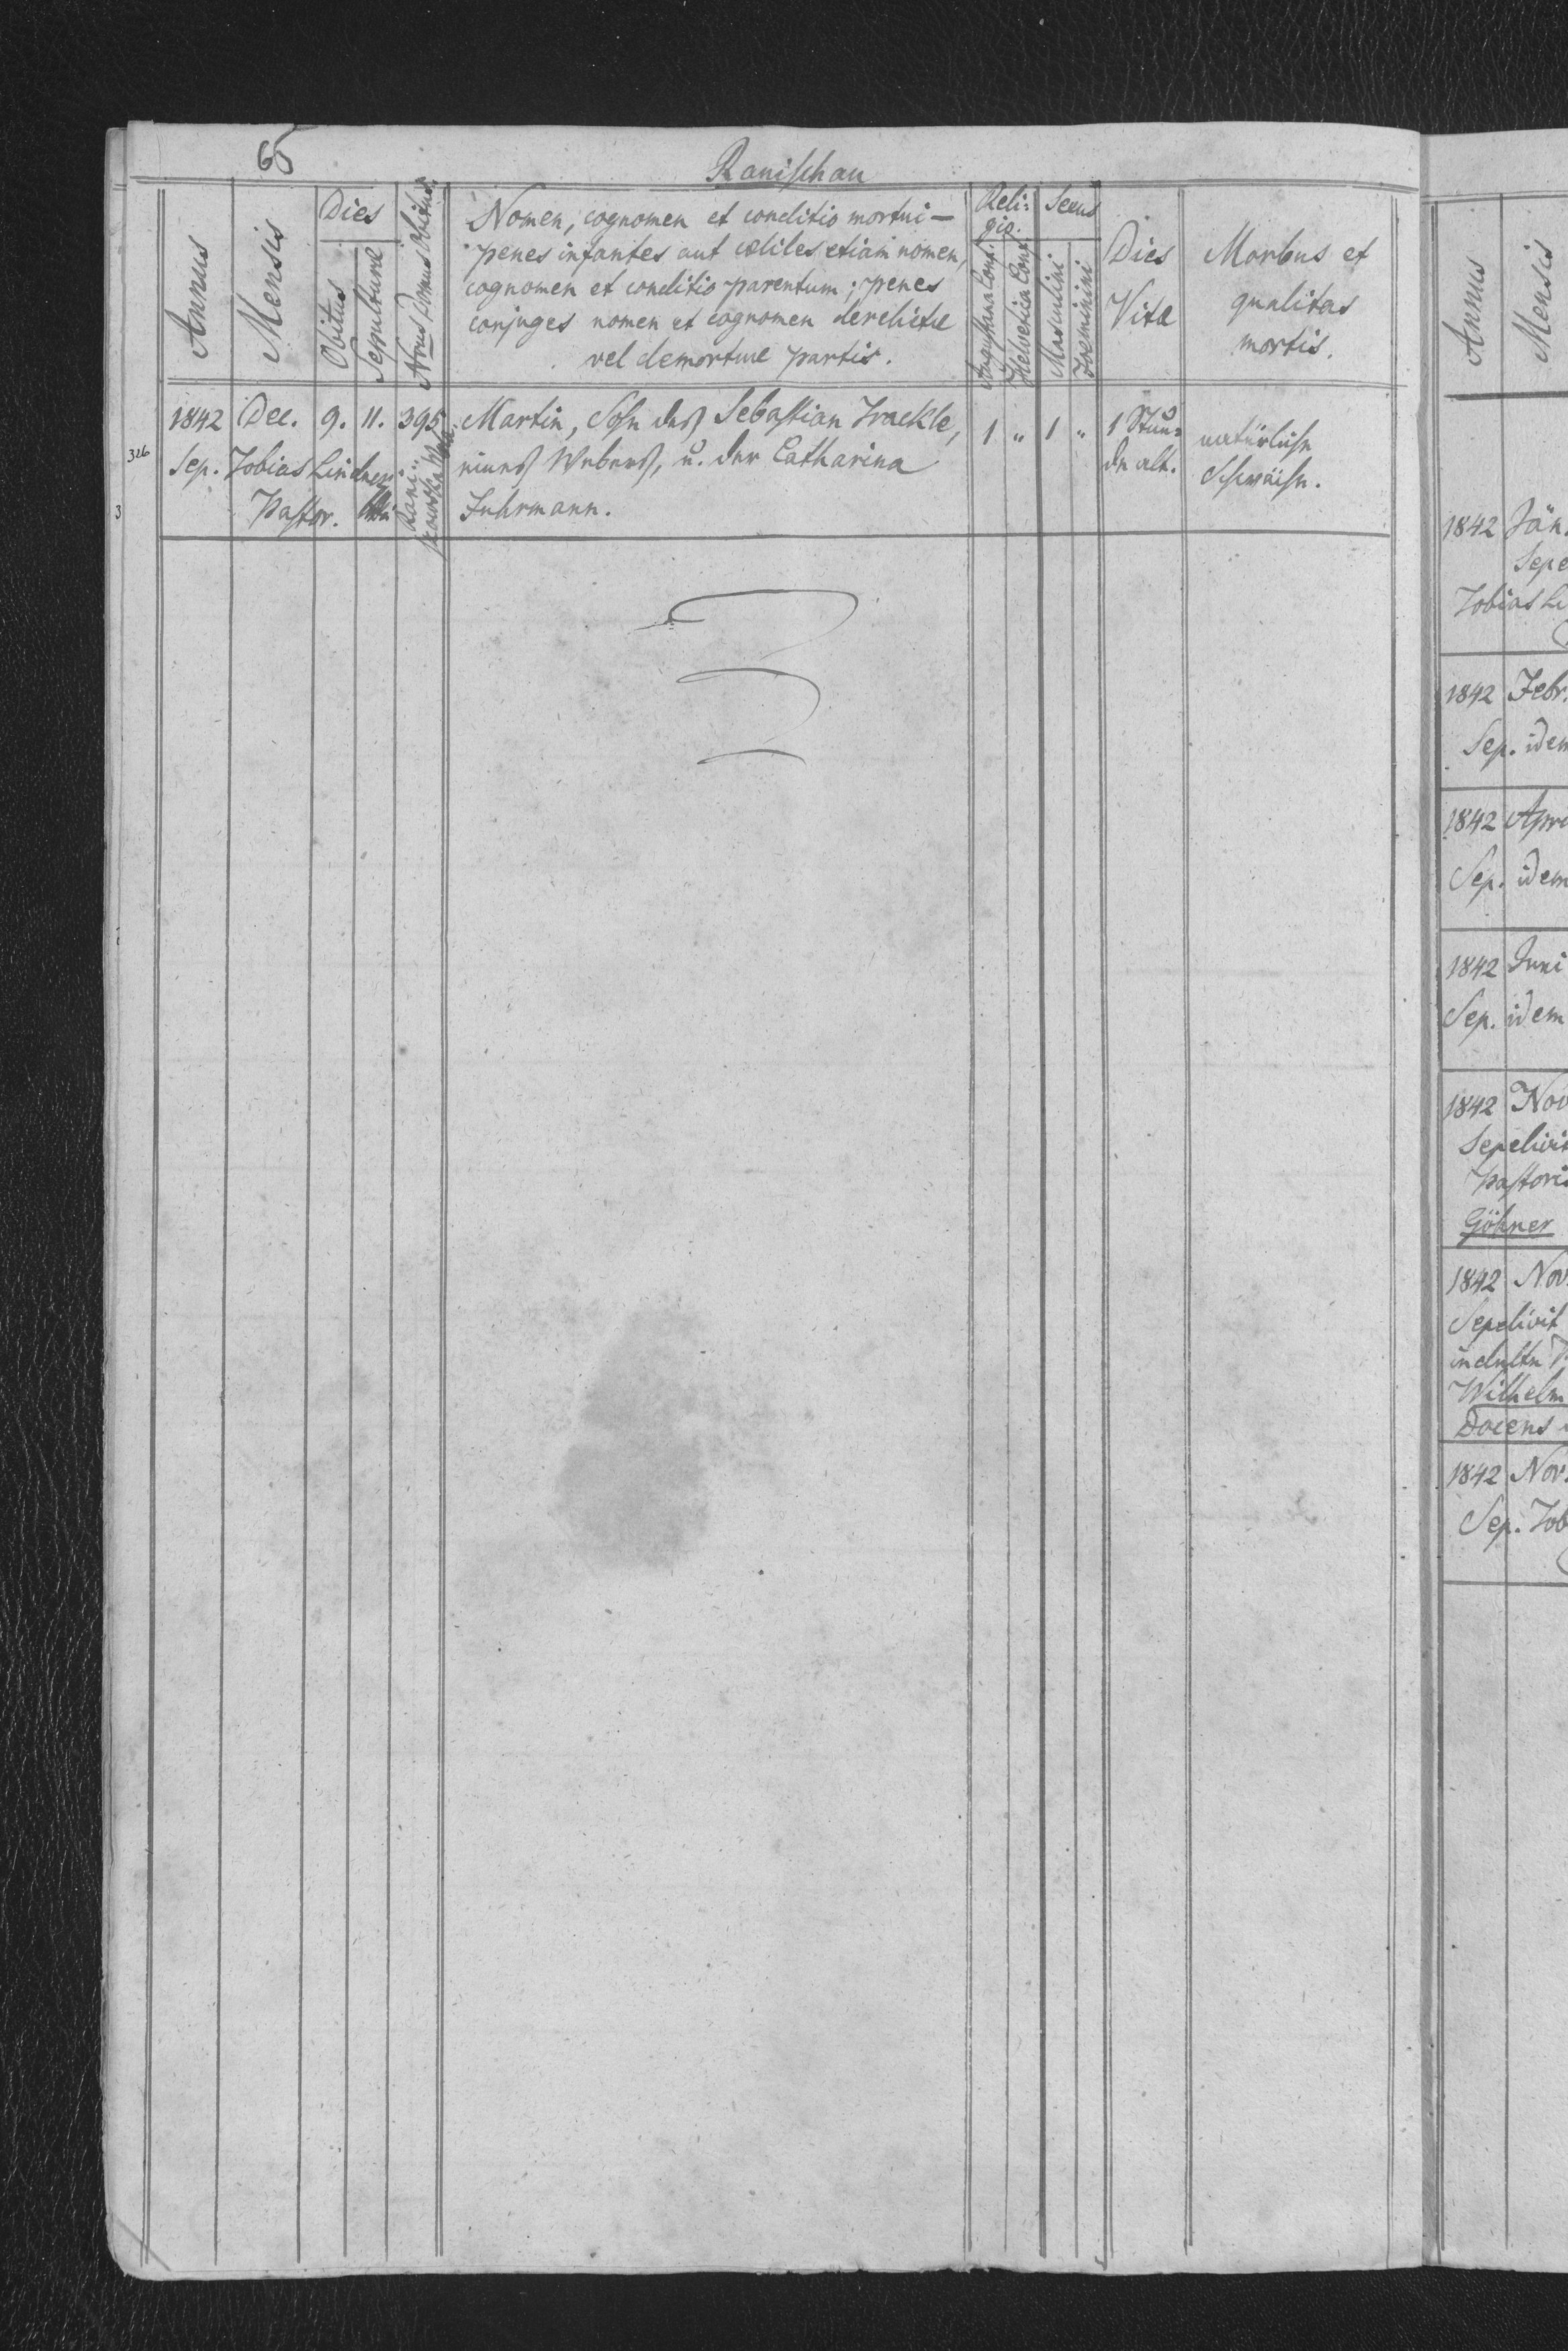 65
Ranischau
Annus
Mensis
Dies
Obitus
Sepulturæ
Nrus Domus Obitus
Nomen, cognomen et conditio mortui —
penes infantes aut cœlites etiam nomen,
cognomen et conditio parentum; penes
conjuges nomen et cognomen derelictæ
vel demortuæ partis.
Reli=
gio.
Augustana Conf.
Helvetica Conf.
Sexus
Masculini
Foeminini
Dies
Vitæ
Morbus et
qualitas
mortis.
1842 Dec. 9. 11. 395 Martin, Sohn des Sebastian Frackle, 1 " 1 " 1 Stun= natürliche
326
Sep. Tobias Lindner eines Webers, u. der Catharina de alt. Schwäche.
3
Pastor. Fuhrmann.
Annus
Mensis
1842 Jän.
Sepe
Tobias Li
1842 Febr.
Sep. idem
1842 Apri
Sep. idem
1842 Juni
Sep. idem
1842 Nov
Sepelivit
Pastoris
Göhner
1842 Nov.
Sepelivit
indultu
Wilhelm
Docens
1842 Nov.
Sep. Tob